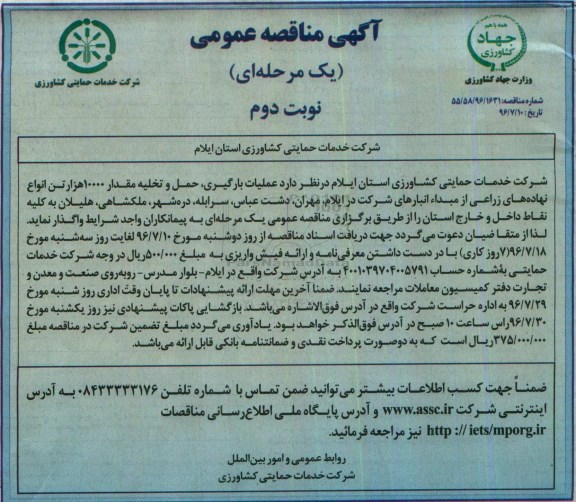 آگهی مناقصه عمومی
(یک مرحله‌ای)
نوبت دوم
شرکت خدمات حمایتی کشاورزی
همه با هم
جهاد
کشاورزی
وزارت جهاد کشاورزی
شماره مناقصه: ۵۵/۵۸/۹۶/۱۶۳۱
تاریخ: ۹۶/۷/۱۰
شرکت خدمات حمایتی کشاورزی استان ایلام
شرکت خدمات حمایتی کشاورزی استان ایلام درنظر دارد عملیات بارگیری، حمل و تخلیه مقدار ۱۰۰۰۰هزارتن انواع
نهاده‌های زراعی از مبداء انبارهای شرکت در ایلام مهران، دشت عباس، سرابله، دره‌شهر، ملکشاهی، هلیلان به کلیه
نقاط داخل و خارج استان را از طریق برگزاری مناقصه عمومی یک مرحله‌ای به پیمانکاران واجد شرایط واگذار نماید.
لذا از متقاضیان دعوت می‌گردد جهت دریافت اسناد مناقصه از روز دوشنبه مورخ ۹۶/۷/۱۰ لغایت روز سه‌شنبه مورخ
۹۶/۷/۱۸(۷روز کاری) با در دست داشتن معرفی‌نامه و ارائه فیش واریزی به مبلغ ۵۰۰/۰۰۰ریال در وجه شرکت خدمات
حمایتی به‌شماره حساب ۴۰۰۱۰۳۹۷۰۴۰۰۵۷۹۱ به آدرس شرکت واقع در ایلام-بلوار مدرس- روبه‌روی صنعت و معدن و
تجارت دفتر کمیسیون معاملات مراجعه نمایند. ضمنا آخرین مهلت ارائه پیشنهادات تا پایان وقت اداری روز شنبه مورخ
۹۶/۷/۲۹ به اداره حراست شرکت واقع در آدرس فوق‌الاشاره می‌باشد. بازگشایی پاکات پیشنهادی نیز روز یکشنبه مورخ
۹۶/۷/۳۰راس ساعت ۱۰ صبح در آدرس فوق‌الذکر خواهد بود. یادآوری می‌گردد مبلغ تضمین شرکت در مناقصه مبلغ
۳۷۵/۰۰۰/۰۰۰ریال است که به دوصورت پرداخت نقدی و ضمانتنامه بانکی قابل ارائه می‌باشد.
ضمناً جهت کسب اطلاعات بیشتر می‌توانید ضمن تماس با شماره تلفن ۰۸۴۳۳۳۳۳۱۷۶ به آدرس
اینترنتی شرکت www.assc.ir و آدرس پایگاه ملی اطلاع‌رسانی مناقصات
http://iets/mporg.ir نیز مراجعه فرمائید.
روابط عمومی و امور بین‌الملل
شرکت خدمات حمایتی کشاورزی